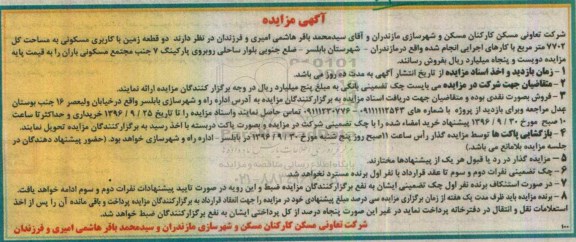 آگهی مزایده
شرکت تعاونی مسکن کارکنان مسکن و شهرسازی مازندران و آقای سیدمحمد باقر هاشمی امیری و فرزندان در نظر دارند دو قطعه زمین با کاربری مسکونی به مساحت کل
۷۷۰۲ متر مربع با کارهای اجرایی انجام شده واقع درمازندران - شهرستان بابلسر - ضلع جنوبی بلوار ساحلی روبروی پارکینگ ۷ جنب مجتمع مسکونی باران را به قیمت پایه
مزایده دویست و پنجاه میلیارد ریال بفروش رسانند.
۱- زمان بازدید و اخذ اسناد مزایده از تاریخ انتشار آگهی به مدت ده روز می باشد.
۲- متقاضیان جهت شرکت در مزایده می بایست چک تضمینی بانکی به مبلغ پنج میلیارد ریال در وجه برگزار کنندگان مزایده ارائه نمایند.
۳- فروش بصورت نقدی بوده و متقاضیان جهت دریافت اسناد مزایده به برگزارکنندگان مزایده به آدرس اداره راه و شهرسازی بابلسر واقع درخیابان ولیعصر ۱۶ جنب بوستان
غدل مراجعه برای بازدید از پروژه با شماره های ۰۹۱۱۱۱۱۲۵۴۳ - ۰۹۱۱۱۲۳۰۷۷۶ تماس حاصل نمایند واسناد مزایده را تا تاریخ ۱۳۹۶/۹/۲۵ خریداری و حداکثر تا ساعت
۱۰ صبح مورخ ۱۳۹۶/۹/۳۰ پیشنهاد خرید امضاء شده را با چک تضمینی شرکت در مزایده و بصورت پاکت دربسته با اخذ رسید به برگزارکنندگان مزایده تحویل نمایند.
۴- بازگشایی پاکت ها توسط مزایده گذار رأس ساعت ۱۱صبح روز پنج شنبه مورخ ۱۳۹۶/۹/۳۰ در بابلسر - اداره راه و شهرسازی خواهد بود. (حضور پیشنهاد دهندگان در
جلسه مزایده بلامانع می باشد.)
۵- مزایده گذار در رد یا قبول هر یک از پیشنهادها مختارند.
۶- چک تضمینی نفرات دوم و سوم تا عقد قرارداد با نفر اول برنده مسترد نخواهد شد.
۷- در صورت استنکاف برنده نفر اول چک تضمینی ایشان به نفع برگزارکنندگان مزایده ضبط و این رویه در صورت تایید پیشنهادات نفرات دوم و سوم ادامه خواهد یافت.
۸- برنده مزایده باید ظرف مدت یک هفته از زمان برگزاری مزایده سی درصد مبلغ پیشنهادی خود در مزایده را جهت انعقاد قرارداد به برگزارکنندگان مزایده پرداخت و باقی مانده آن را پس از اخذ
استعلامات نقل و انتقال در دفترخانه پرداخت نماید در غیر این صورت پنجاه درصد از کل پرداختی ایشان به نفع برگزارکنندگان ضبط خواهد شد.
شرکت تعاونی مسکن کارکنان مسکن و شهرسازی مازندران و سیدمحمد باقر هاشمی امیری و فرزندان